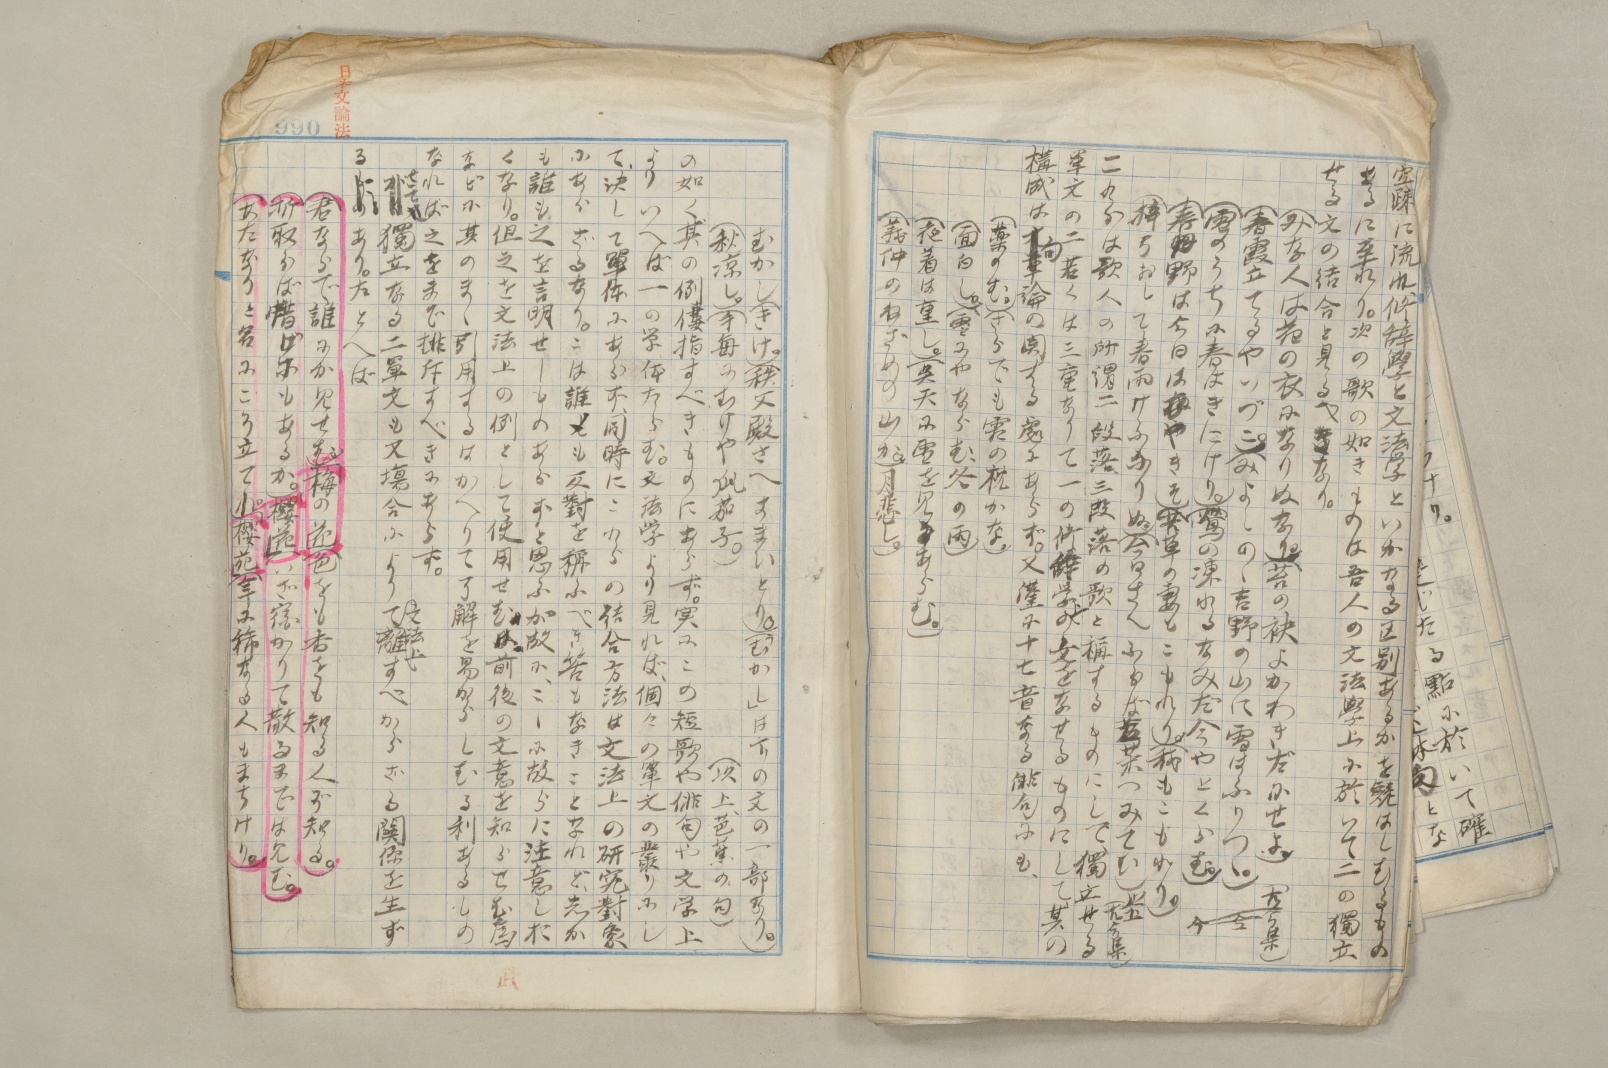 空疎に流れ修辞学と文法学といかなる区別あるかを疑はしむるもの
あるに至れり。次の歌の如きものは吾人の文法学上に於いて二の獨立
せる文の結合と見るべきなり。
みな人は花の衣になりぬなり。苔の袂よかわきだにせよ。(古今集)
春霞立てるやいづこ。みよしのゝ吉野の山に雪はふりつゝ。
雪のうちに春はきにけり。鶯の凍れるなみだ今やとくらむ。
春日野は今日はなやきそ。若草の妻もこもれり。我もこもれり。
梓弓おして春雨けふふりぬ。今日さへふらば若菜つみてむ。(古今集)
これらは歌人の所謂二段落三段落の歌と称するものにして獨立せる
単文の二若くは三重なりて一の修辞学の文をなせるものにして其の
構成は句論の関する處にあらず。又僅に十七音なる俳句にも、
薬のむさらでも霜の枕かな。
面白し。雪にやならむ冬の雨
夜着は重し。呉天に雪を見るあらむ。
義仲のねざめの山か月悲し。
日本文論法
990
むかしきけ。秩父殿さへすまひとり。(「むかし」は下の文の一部なり。)
秋凉し。手毎にむけや瓜茄子。(以上、芭蕉の句)
の如く其の例僂指すべきものにあらず。実にこの短歌や俳句や文学上
よりいへば一の単体たらむ。文法学より見れば、個々の単文の叢りにし
て、決して単体にあらず、同時にこれらの結合方法は文法上の研究對象
にあらざるなり。こは誰も反對を称ふべき筈もなきことなれど、しか
も誰も之を言明せしものあらずと思ふが故に、こゝに故らに注意しお
くなり。但之を文法上の例として使用せむには前後の文意を知らせむ為
などに其のまゝ引用するはかへりて了解を易からしむる利あるもの
なれば之をまで排斥すべきにあらず。
さて獨立なる二単文も又場合によりて文法上離すべからざる関係を生ず
ることあり。たとへば
君ならで誰にか見せむ梅の花色をも香をも知る人ぞ知る。
折取らば惜しげにもあるか。櫻花いざ宿かりて散るまでは見む。
あだなりと名にこそ立てれ。櫻花年に稀なる人もまちけり。